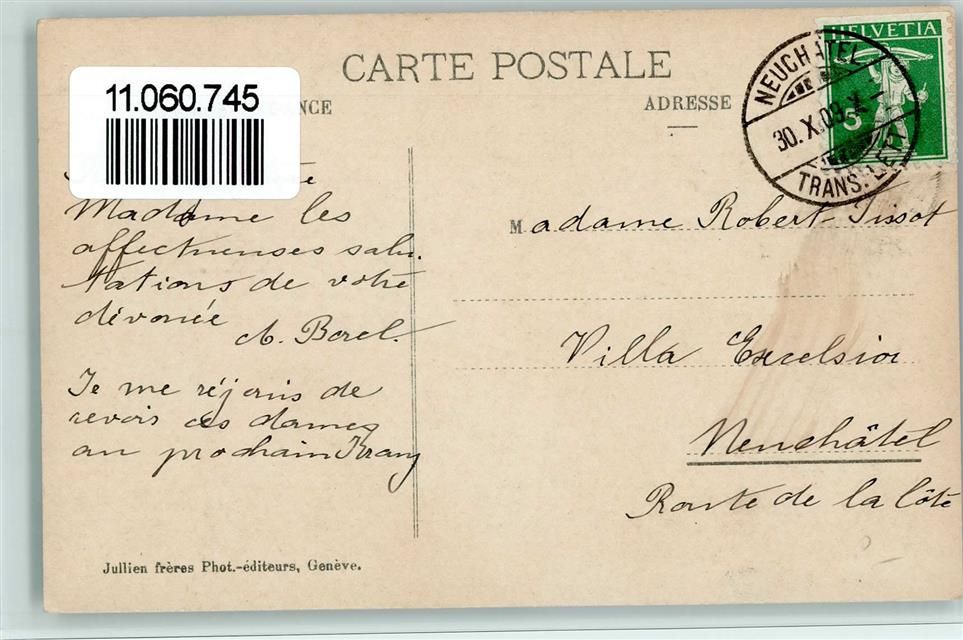 CARTE POSTALE
11.060.745
ADRESSE
HELVETIA
5
NEUCHATEL
30.X.09.X
TRANS. LETT.
Madame les
affectueuses salu-
tations de votre
dévouée
A. Borel.
Je me réjouis de
revoir ces dames
au prochain Kranz
Madame Robert-Tissot
Villa Excelsior
Neuchâtel
Route de la Côte
Jullien frères Phot.-éditeurs, Genève.